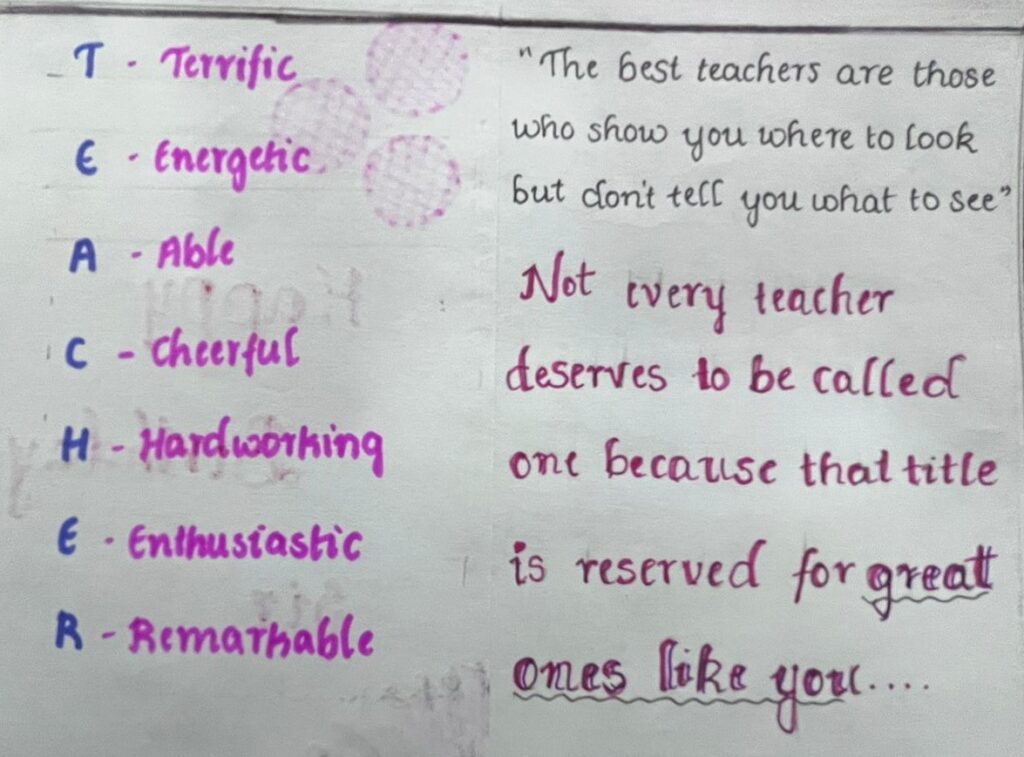 T - Terrific
E - Energetic
A - Able
C - Cheerful
H - Hardworking
E - Enthusiastic
R - Remarkable
"The best teachers are those
who show you where to look
but don't tell you what to see"
Not every teacher
deserves to be called
one because that title
is reserved for great
ones like you....